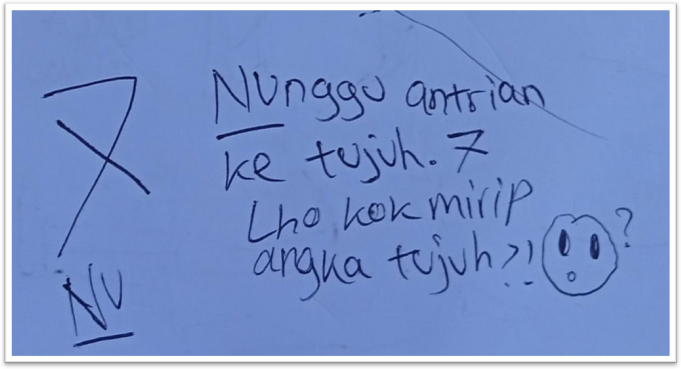 ヌ
NU
NUnggu antrian
ke tujuh. 7
Lho kok mirip
angka tujuh?!
?